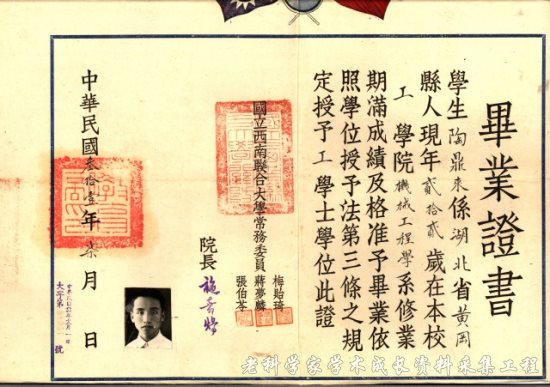 畢業證書
學生陶鼎來係湖北省黃岡
縣人現年貳拾貳歲在本校
工學院機械工程學系修業
期滿成績及格准予畢業依
照學位授予法第三條之規
定授予工學士學位此證
國立西南聯合大學常務委員
梅貽琦
蔣夢麟
張伯苓
院長 施嘉煬
中華民國叁拾壹年柒月 日
老科学家学术成长资料采集工程